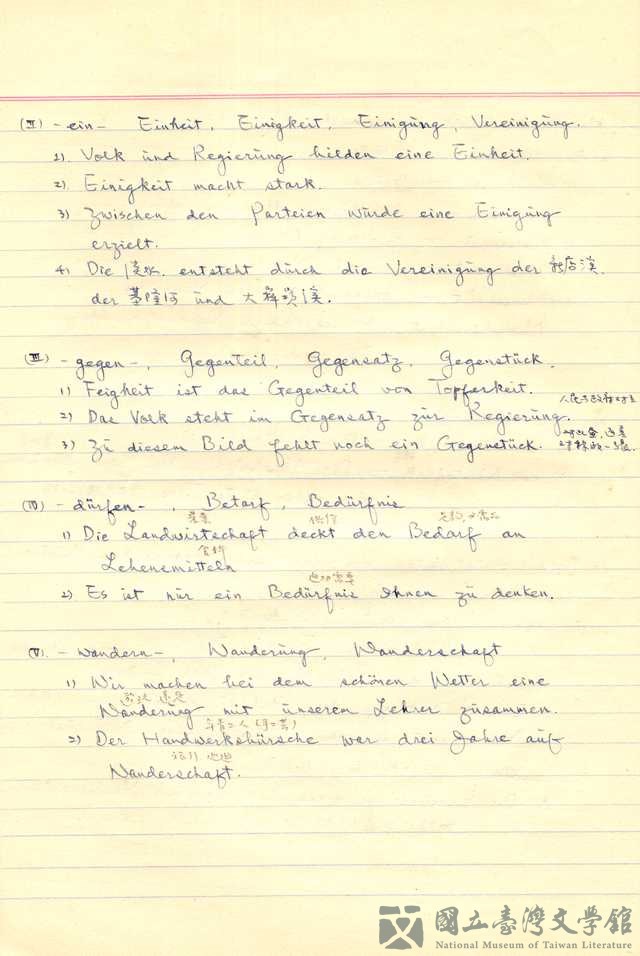 (II) -ein- Einheit, Einigkeit, Einigung, Vereinigung.
1). Volk und Regierung bilden eine Einheit.
2). Einigkeit macht stark.
3) Zwischen den Parteien wurde eine Einigung
erzielt.
4) Die 淡水 entsteht durch die Vereinigung der 新店溪,
der 基隆河 und 大嵙崁溪.
(III) -gegen-, Gegenteil, Gegensatz, Gegenstück.
1) Feigheit ist das Gegenteil von Topferkeit.
2) Das Volk steht im Gegensatz zur Regierung.
3) Zu diesem Bild fehlt noch ein Gegenstück.
(IV) -dürfen-, Betarf, Bedürfnis
農業 供行
1) Die Landwirtschaft deckt den Bedarf an
食料
Lebensmitteln
2) Es ist nur ein Bedürfnis Ihnen zu denken.
(V). -wandern-, Wanderung, Wanderschaft
1) Wir machen bei dem schönen Wetter eine
Wanderung mit unserem Lehrer zusammen.
2) Der Handwerksbursche war drei Jahre auf
Wanderschaft.
國立臺灣文學館
National Museum of Taiwan Literature